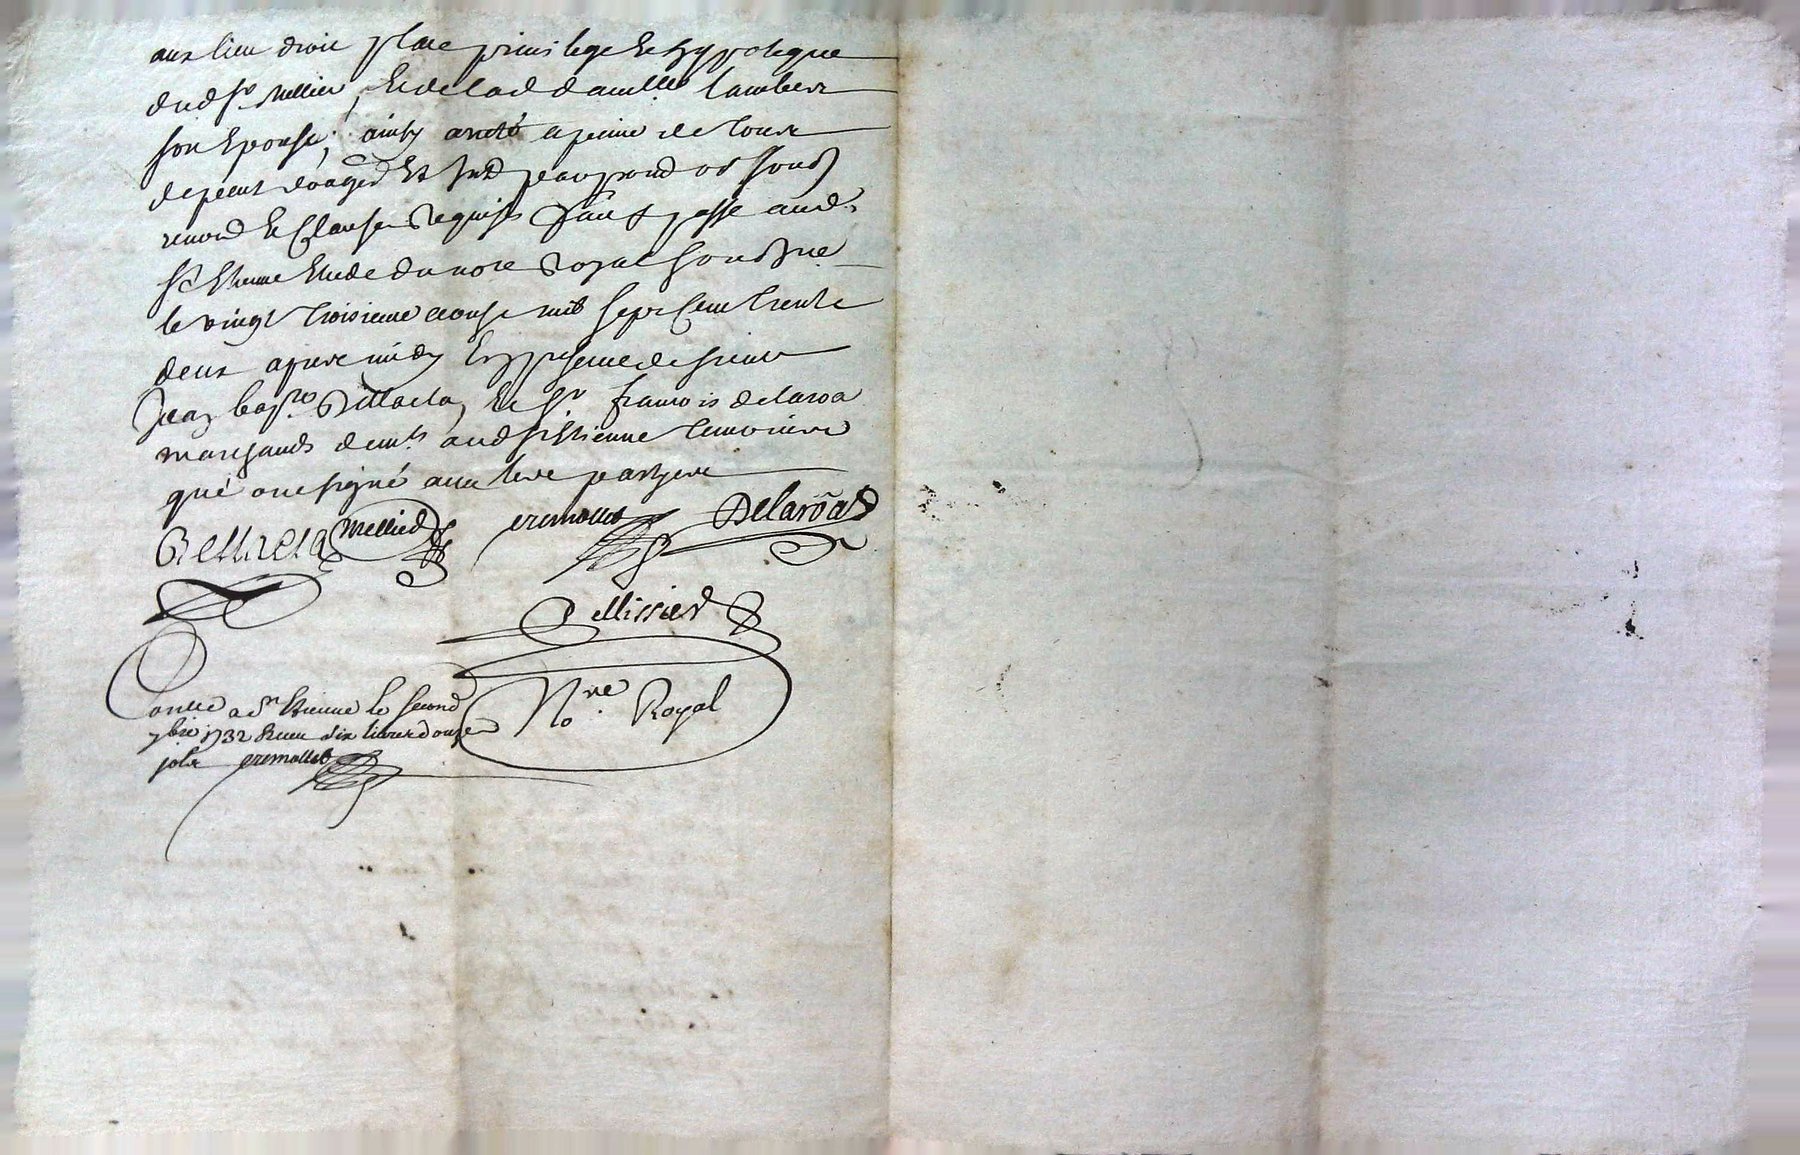 aux lieu droit place privilege & hyppoteque
dud Sr Mellier, & de lad damlle Lambert
son Epouse, ainsy areté a peine de tous
depens
renon & clauses requises fait & passé aud
St Etienne Etude du nore Royal sousne
le vingt troisieme aoust mil sept cent trente
deux apres midy En presence de sieur
Jean bapte Bettaela & Sr francois delaroa
marchands demts aud St Etienne temoins
qui ont signé avec les parties
Mellier cremollet Delaröa
Pellissier
Nore Royal
Conlle a St Etienne le second
7bre 1732 Receu dix livres douze
sols cremollet